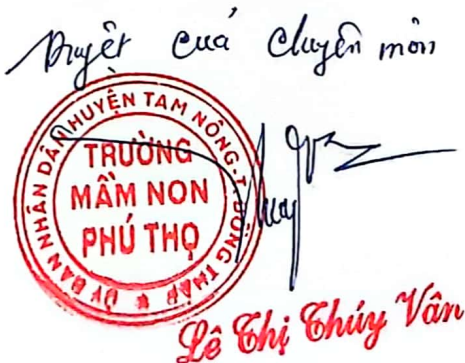 Duyệt của chuyên môn
ỦY BAN NHÂN DÂN HUYỆN TAM NÔNG-T.ĐỒNG THÁP
TRƯỜNG
MẦM NON
PHÚ THỌ
Lê Thị Thúy Vân